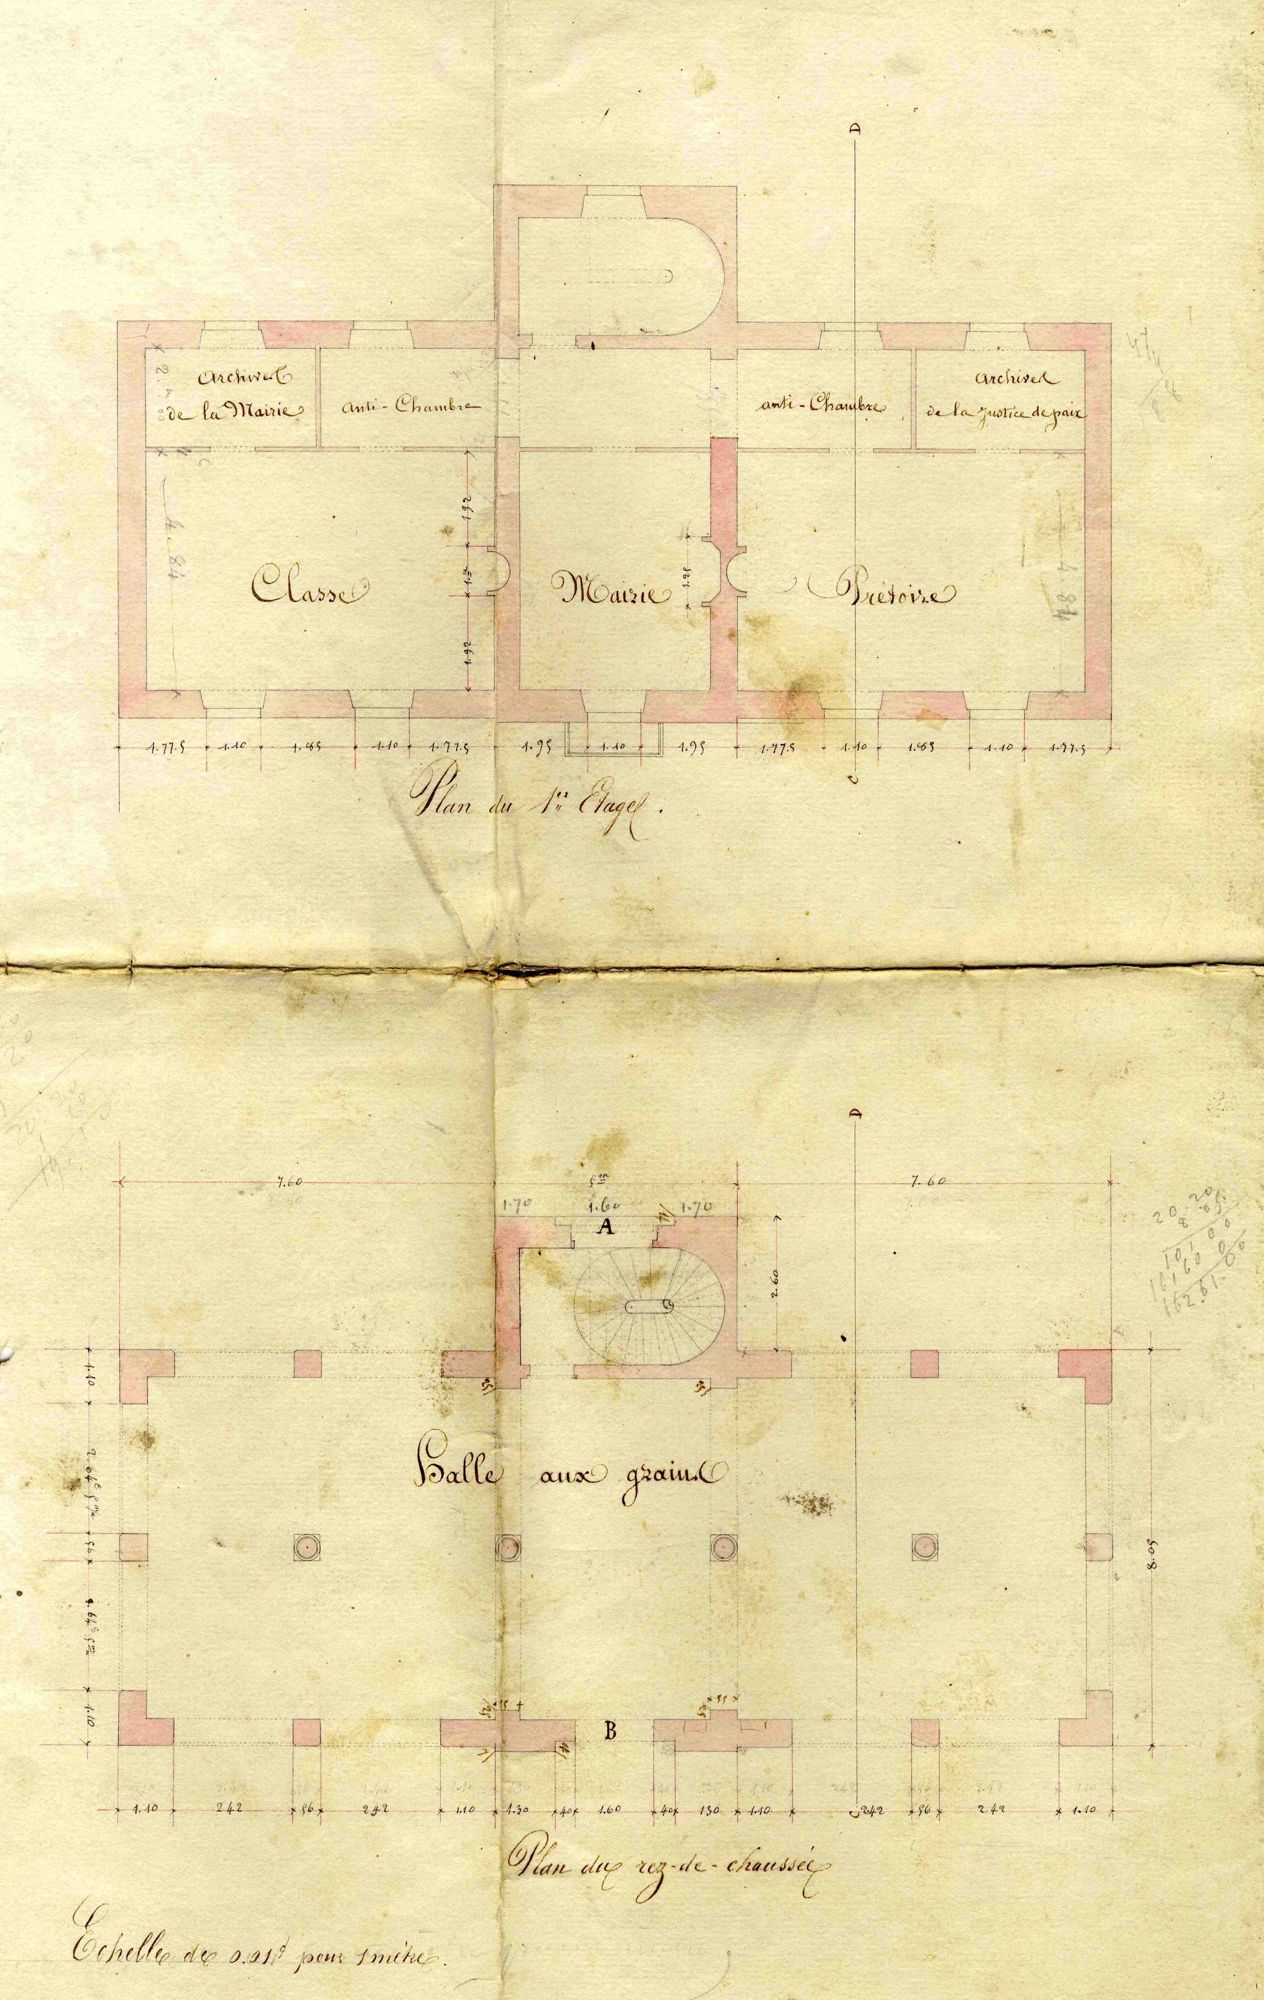 D
Archives
de la Mairie
anti-Chambre
anti-Chambre
Archives
de la Justice de paix
1.92
1.92
1.25
4.84
4.84
Classe
Mairie
Prétoire
1.77.5
1.10
1.85
1.10
1.77.5
1.95
1.10
1.95
1.77.5
1.10
1.85
1.10
1.77.5
C
Plan du 1er Etage.
D
7.60
5m
7.60
1.70
1.60
1.70
A
2.60
20.20
8.05
10100
16160
162.61.00
1.10
Halle aux grains
54
8.05
1.10
55
B
1.10
242
56
242
1.10
1.30
40
1.60
40
130
1.10
C
242
56
2.42
1.10
Plan du rez-de-chaussée
Echelle de 0.01c pour 1 mètre.